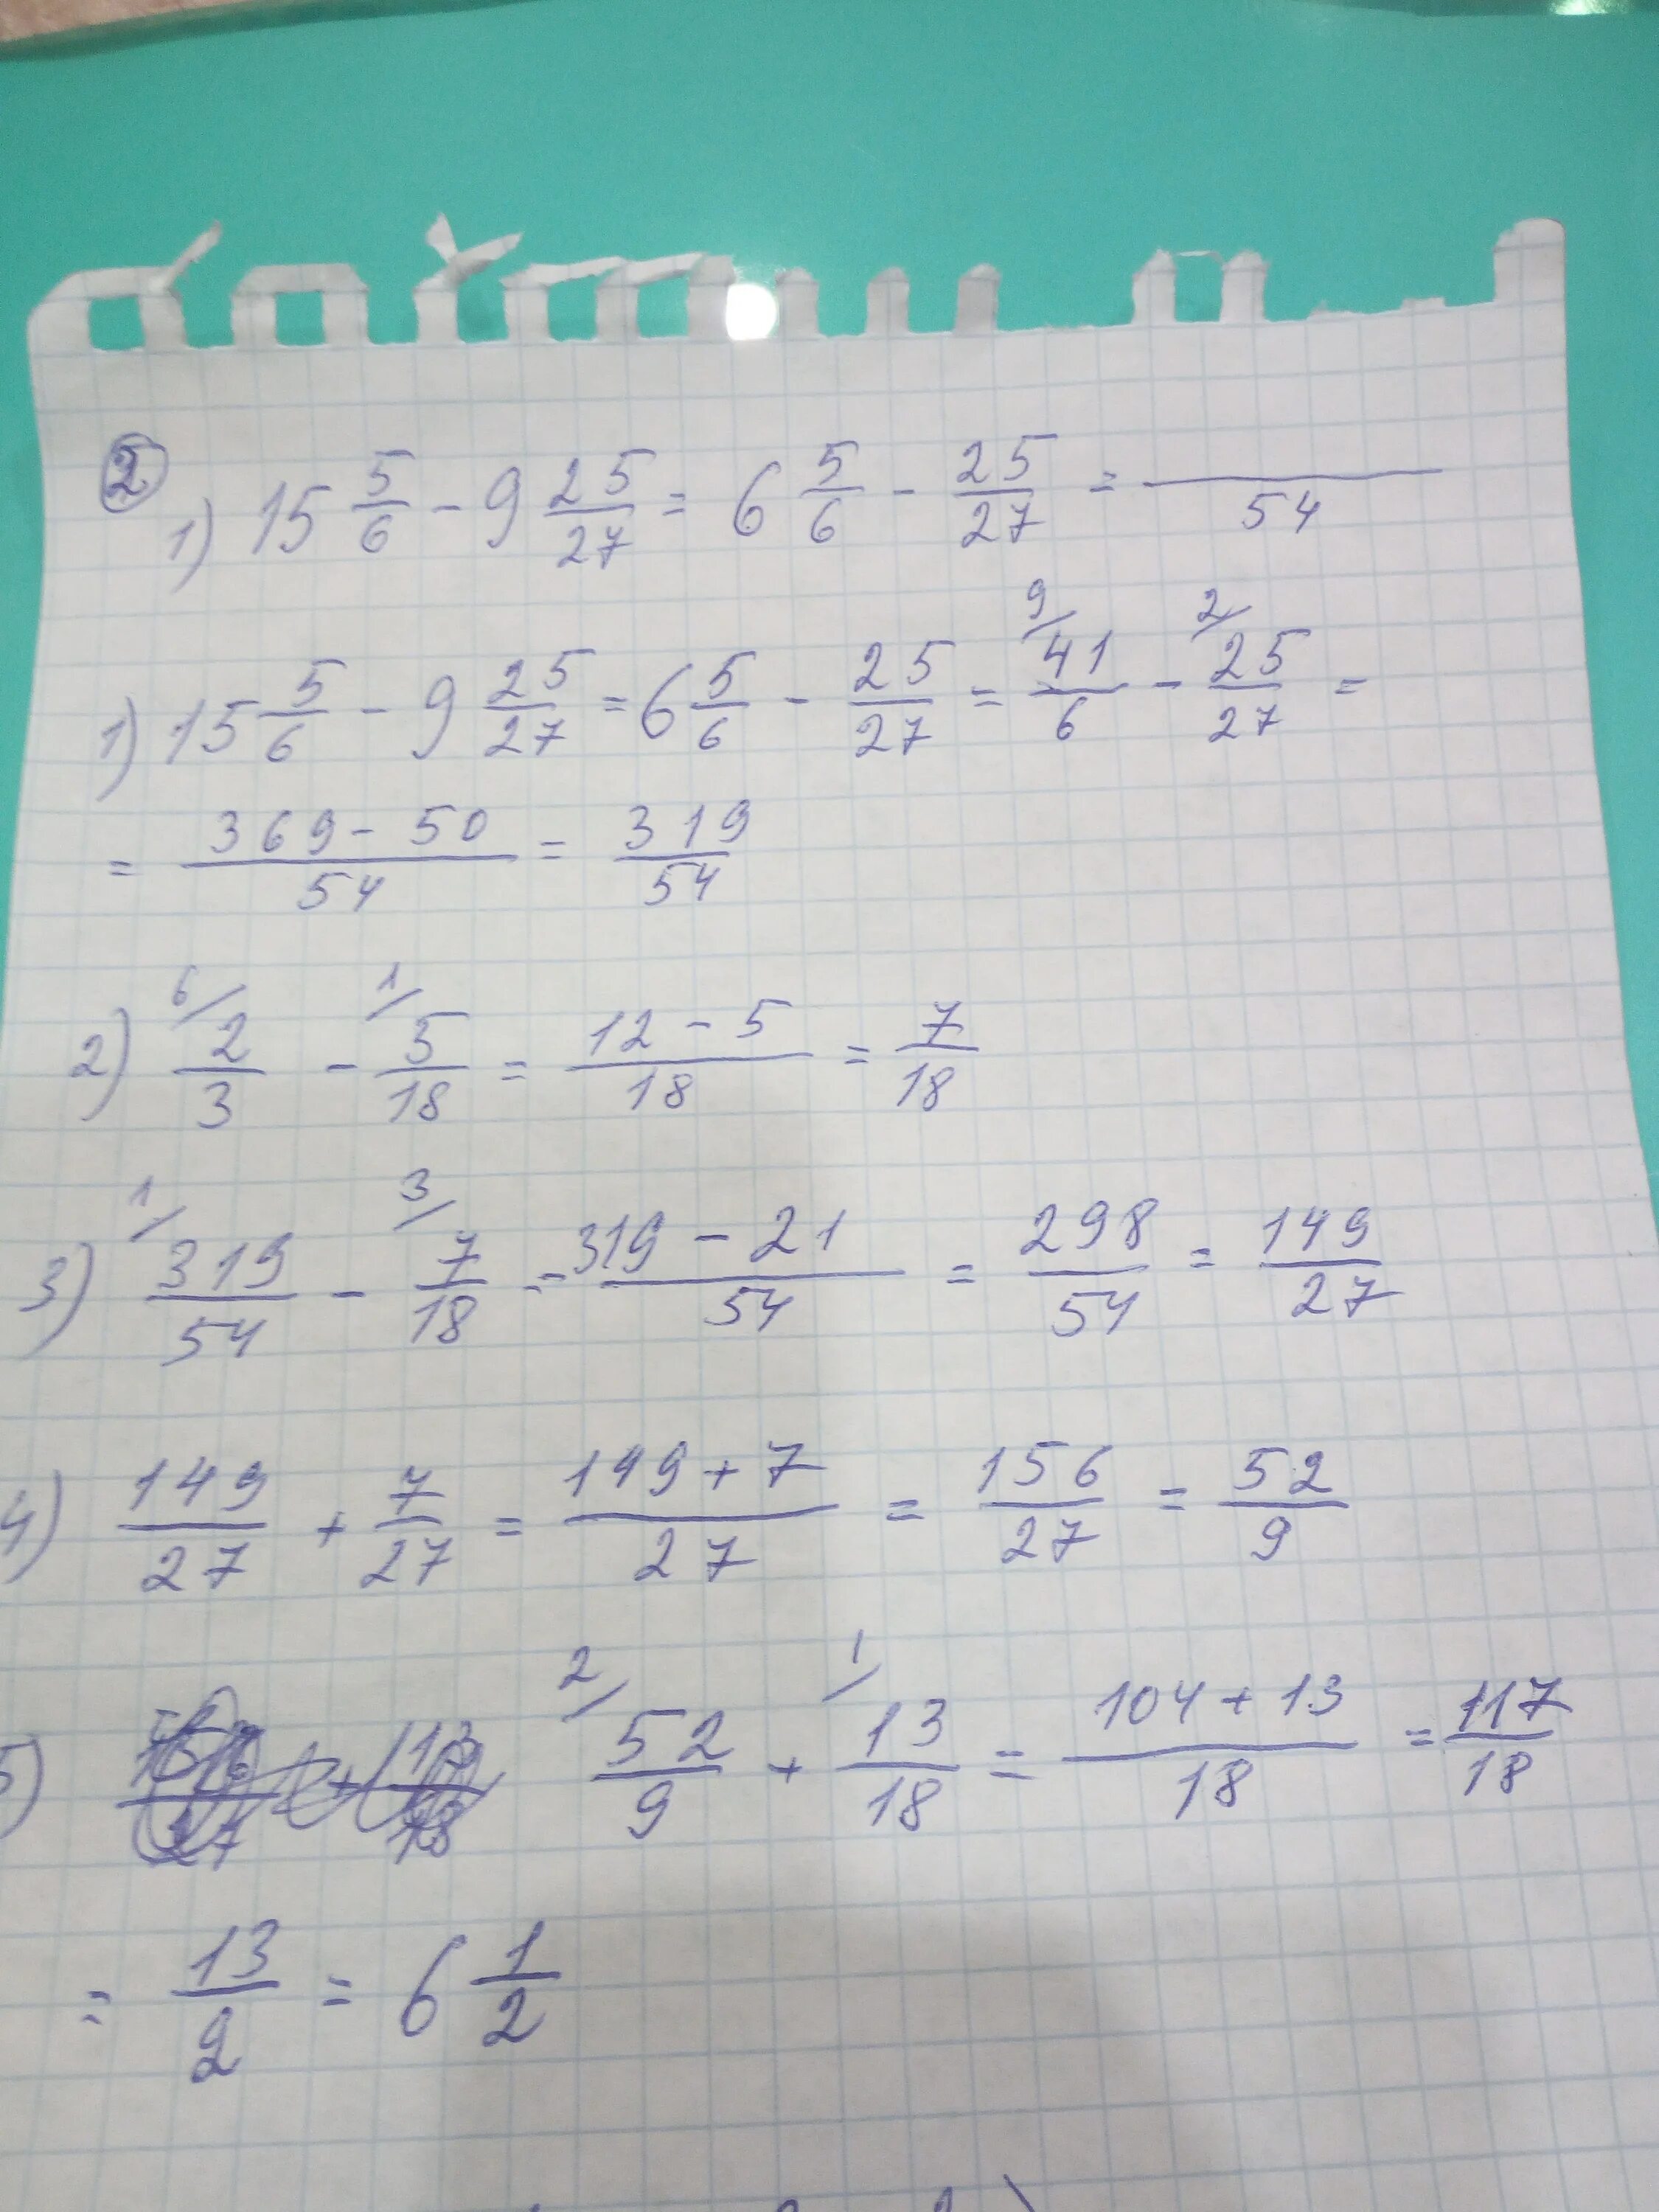 ② 1) 15 5/6 - 9 25/27 = 6 5/6 - 25/27 = /54
1) 15 5/6 - 9 25/27 = 6 5/6 - 25/27 = 9/ 41/6 - 2/ 25/27 =
= 369 - 50/54 = 319/54
2) 6/ 2/3 - 1/ 5/18 = 12 - 5/18 = 7/18
3) 1/ 319/54 - 3/ 7/18 = 319 - 21/54 = 298/54 = 149/27
4) 149/27 + 7/27 = 149 + 7/27 = 156/27 = 52/9
5) 2/ 52/9 + 1/ 13/18 = 104 + 13/18 = 117/18
= 13/2 = 6 1/2